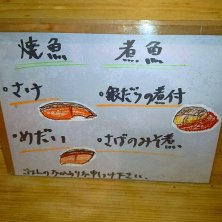 焼魚
煮魚
・さけ
・銀だらの煮付
・めだい
・さばのみそ煮